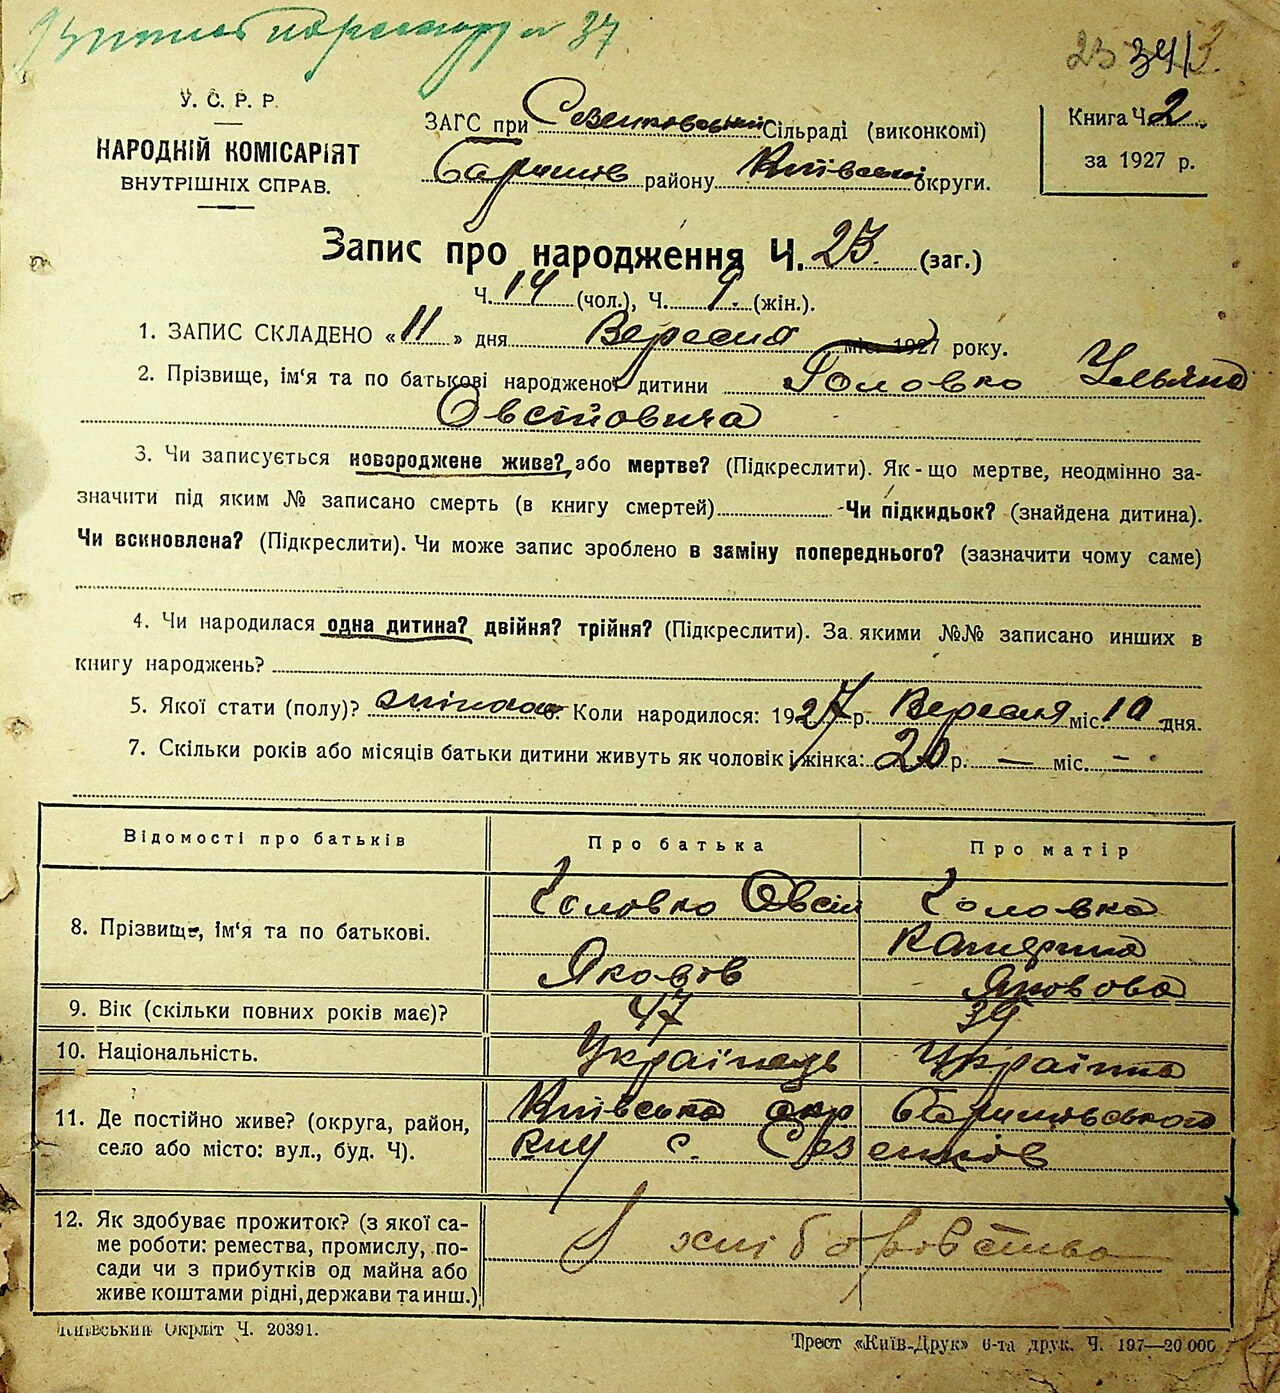 № 37
23 34/3.
У. С. Р. Р.
НАРОДНІЙ КОМІСАРІЯТ
ВНУТРІШНІХ СПРАВ.
ЗАГС при Сезенковській Сільраді (виконкомі)
Баришів району Київської округи.
Книга Ч. 2.
за 1927 р.
Запис про народження Ч. 23. (заг.)
Ч. 14 (чол.), Ч. 9. (жін.).
1. ЗАПИС СКЛАДЕНО «11» дня Вересня міс. 1927 року.
2. Прізвище, ім‘я та по батькові народженої дитини Головко Ульяна
Овсійовича
3. Чи записується новороджене живе? або мертве? (Підкреслити). Як-що мертве, неодмінно за-
значити під яким № записано смерть (в книгу смертей) Чи підкидьок? (знайдена дитина).
Чи всиновлена? (Підкреслити). Чи може запис зроблено в заміну попереднього? (зазначити чому саме)
4. Чи народилася одна дитина? двійня? трійня? (Підкреслити). За якими №№ записано инших в
книгу народжень?
5. Якої стати (полу)? Коли народилося: 1927 р. Вересня міс. 10 дня.
7. Скільки років або місяців батьки дитини живуть як чоловік і жінка: 20 р. — міс. —
Відомості про батьків Про батька Про матір
8. Прізвище, ім‘я та по батькові. Головко Овсій Яковів Головко Катерина Яковова
9. Вік (скільки повних років має)? 47 39
10. Національність. Українець Українка
11. Де постійно живе? (округа, район, Київська окр Баришовського
село або місто: вул., буд. Ч). с. Сезенків
12. Як здобуває прожиток? (з якої са-
ме роботи: ремества, промислу, по- З хліборобства
сади чи з прибутків од майна або
живе коштами рідні, держави та инш.)
Київський Окрліт Ч. 20391.
Трест «Київ-Друк» 6-та друк. Ч. 197—20 000